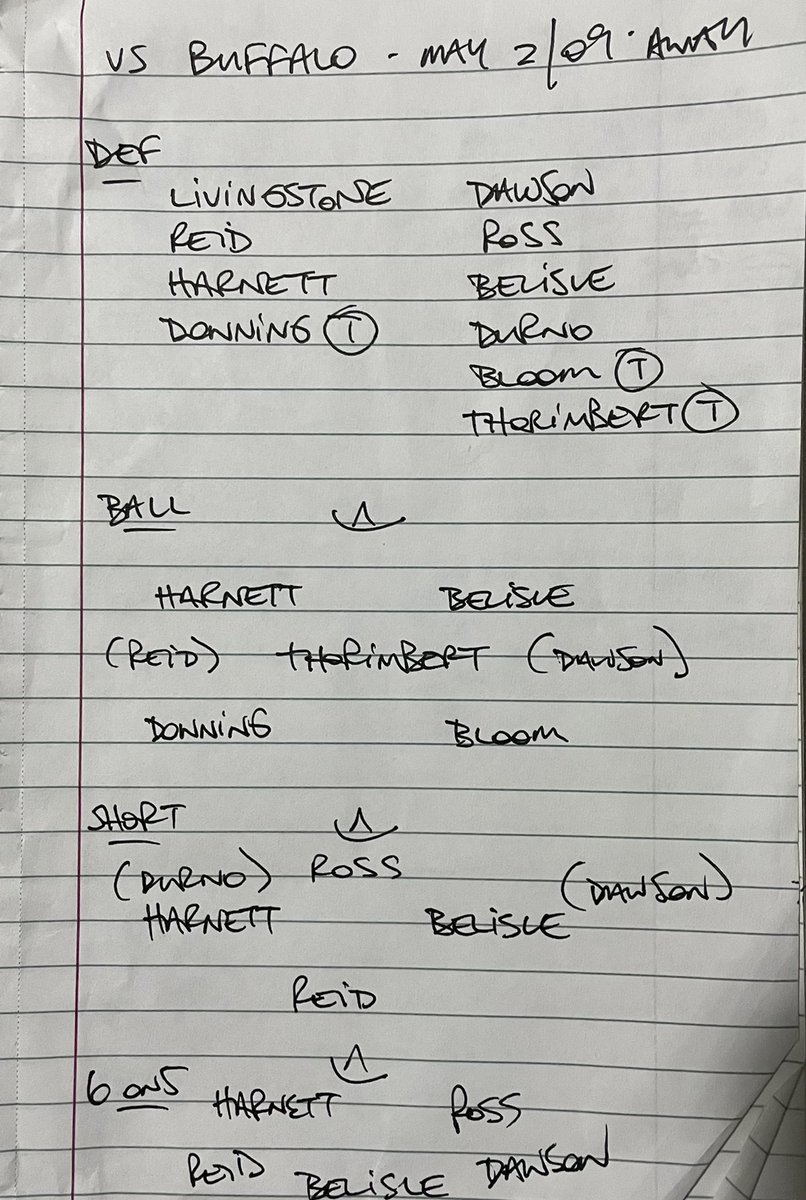 VS BUFFALO - MAY 2/09 · AWAY
DEF
LIVINGSTONE DAWSON
REID ROSS
HARNETT BELISLE
DONNING T DURNO
BLOOM T
THORIMBERT T
BALL
HARNETT BELISLE
(REID) THORIMBERT (DAWSON)
DONNING BLOOM
SHORT
(DURNO) ROSS (DAWSON)
HARNETT BELISLE
REID
6 ON 5 HARNETT ROSS
REID BELISLE DAWSON